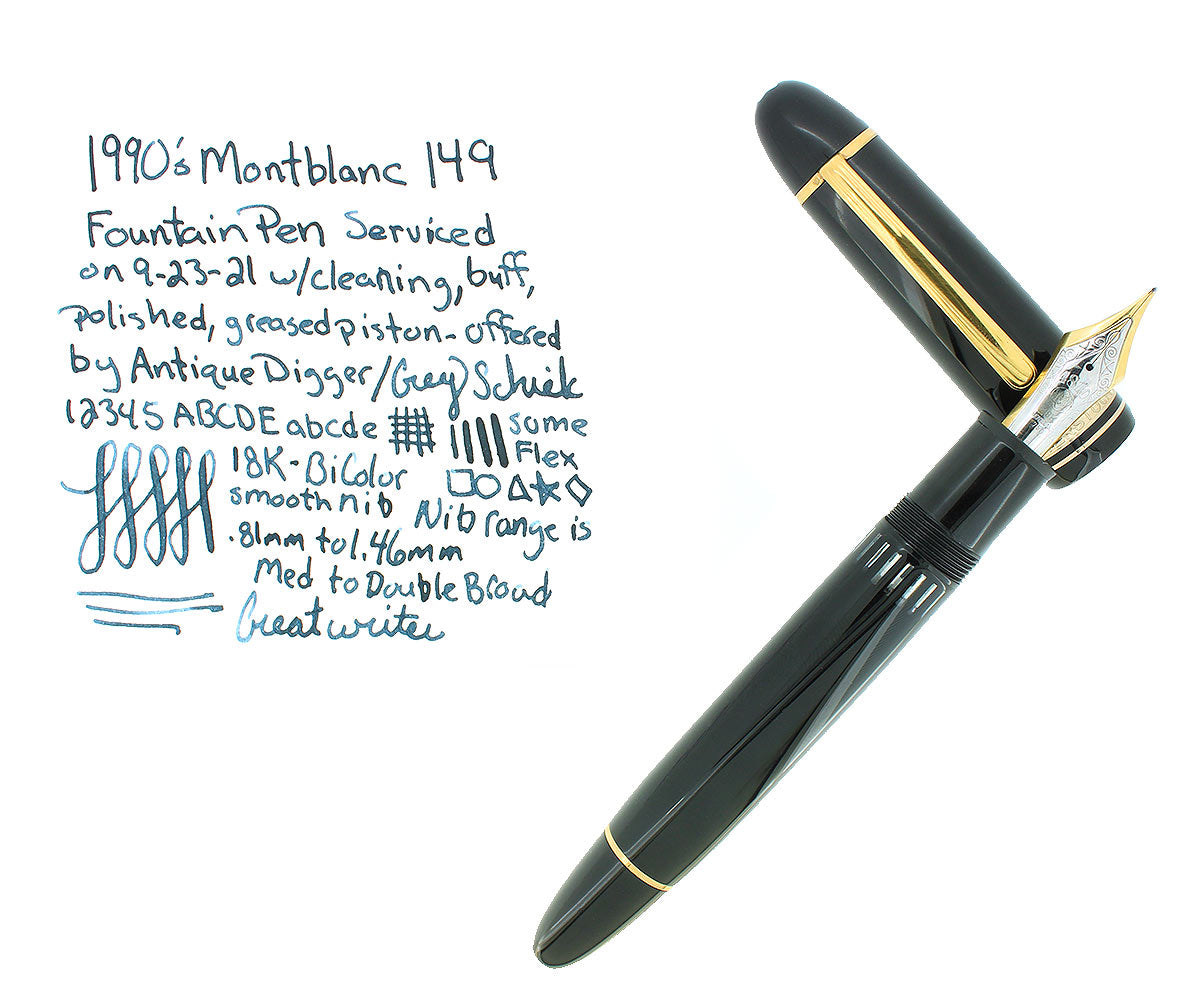 1990's Montblanc 149
Fountain Pen Serviced
on 9-23-21 w/cleaning, buff,
polished, greased piston - offered
by Antique Digger/Greg Schiek
12345 ABCDE abcde some
Flex
18K - BiColor
smooth nib Nib range is
.81mm to 1.46mm
Med to Double Broad
Great writer